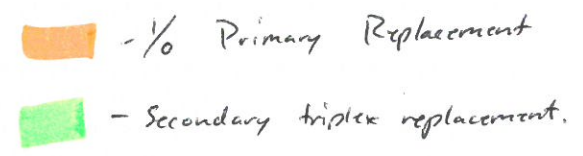 - 1/0 Primary Replacement
- Secondary triplex replacement.